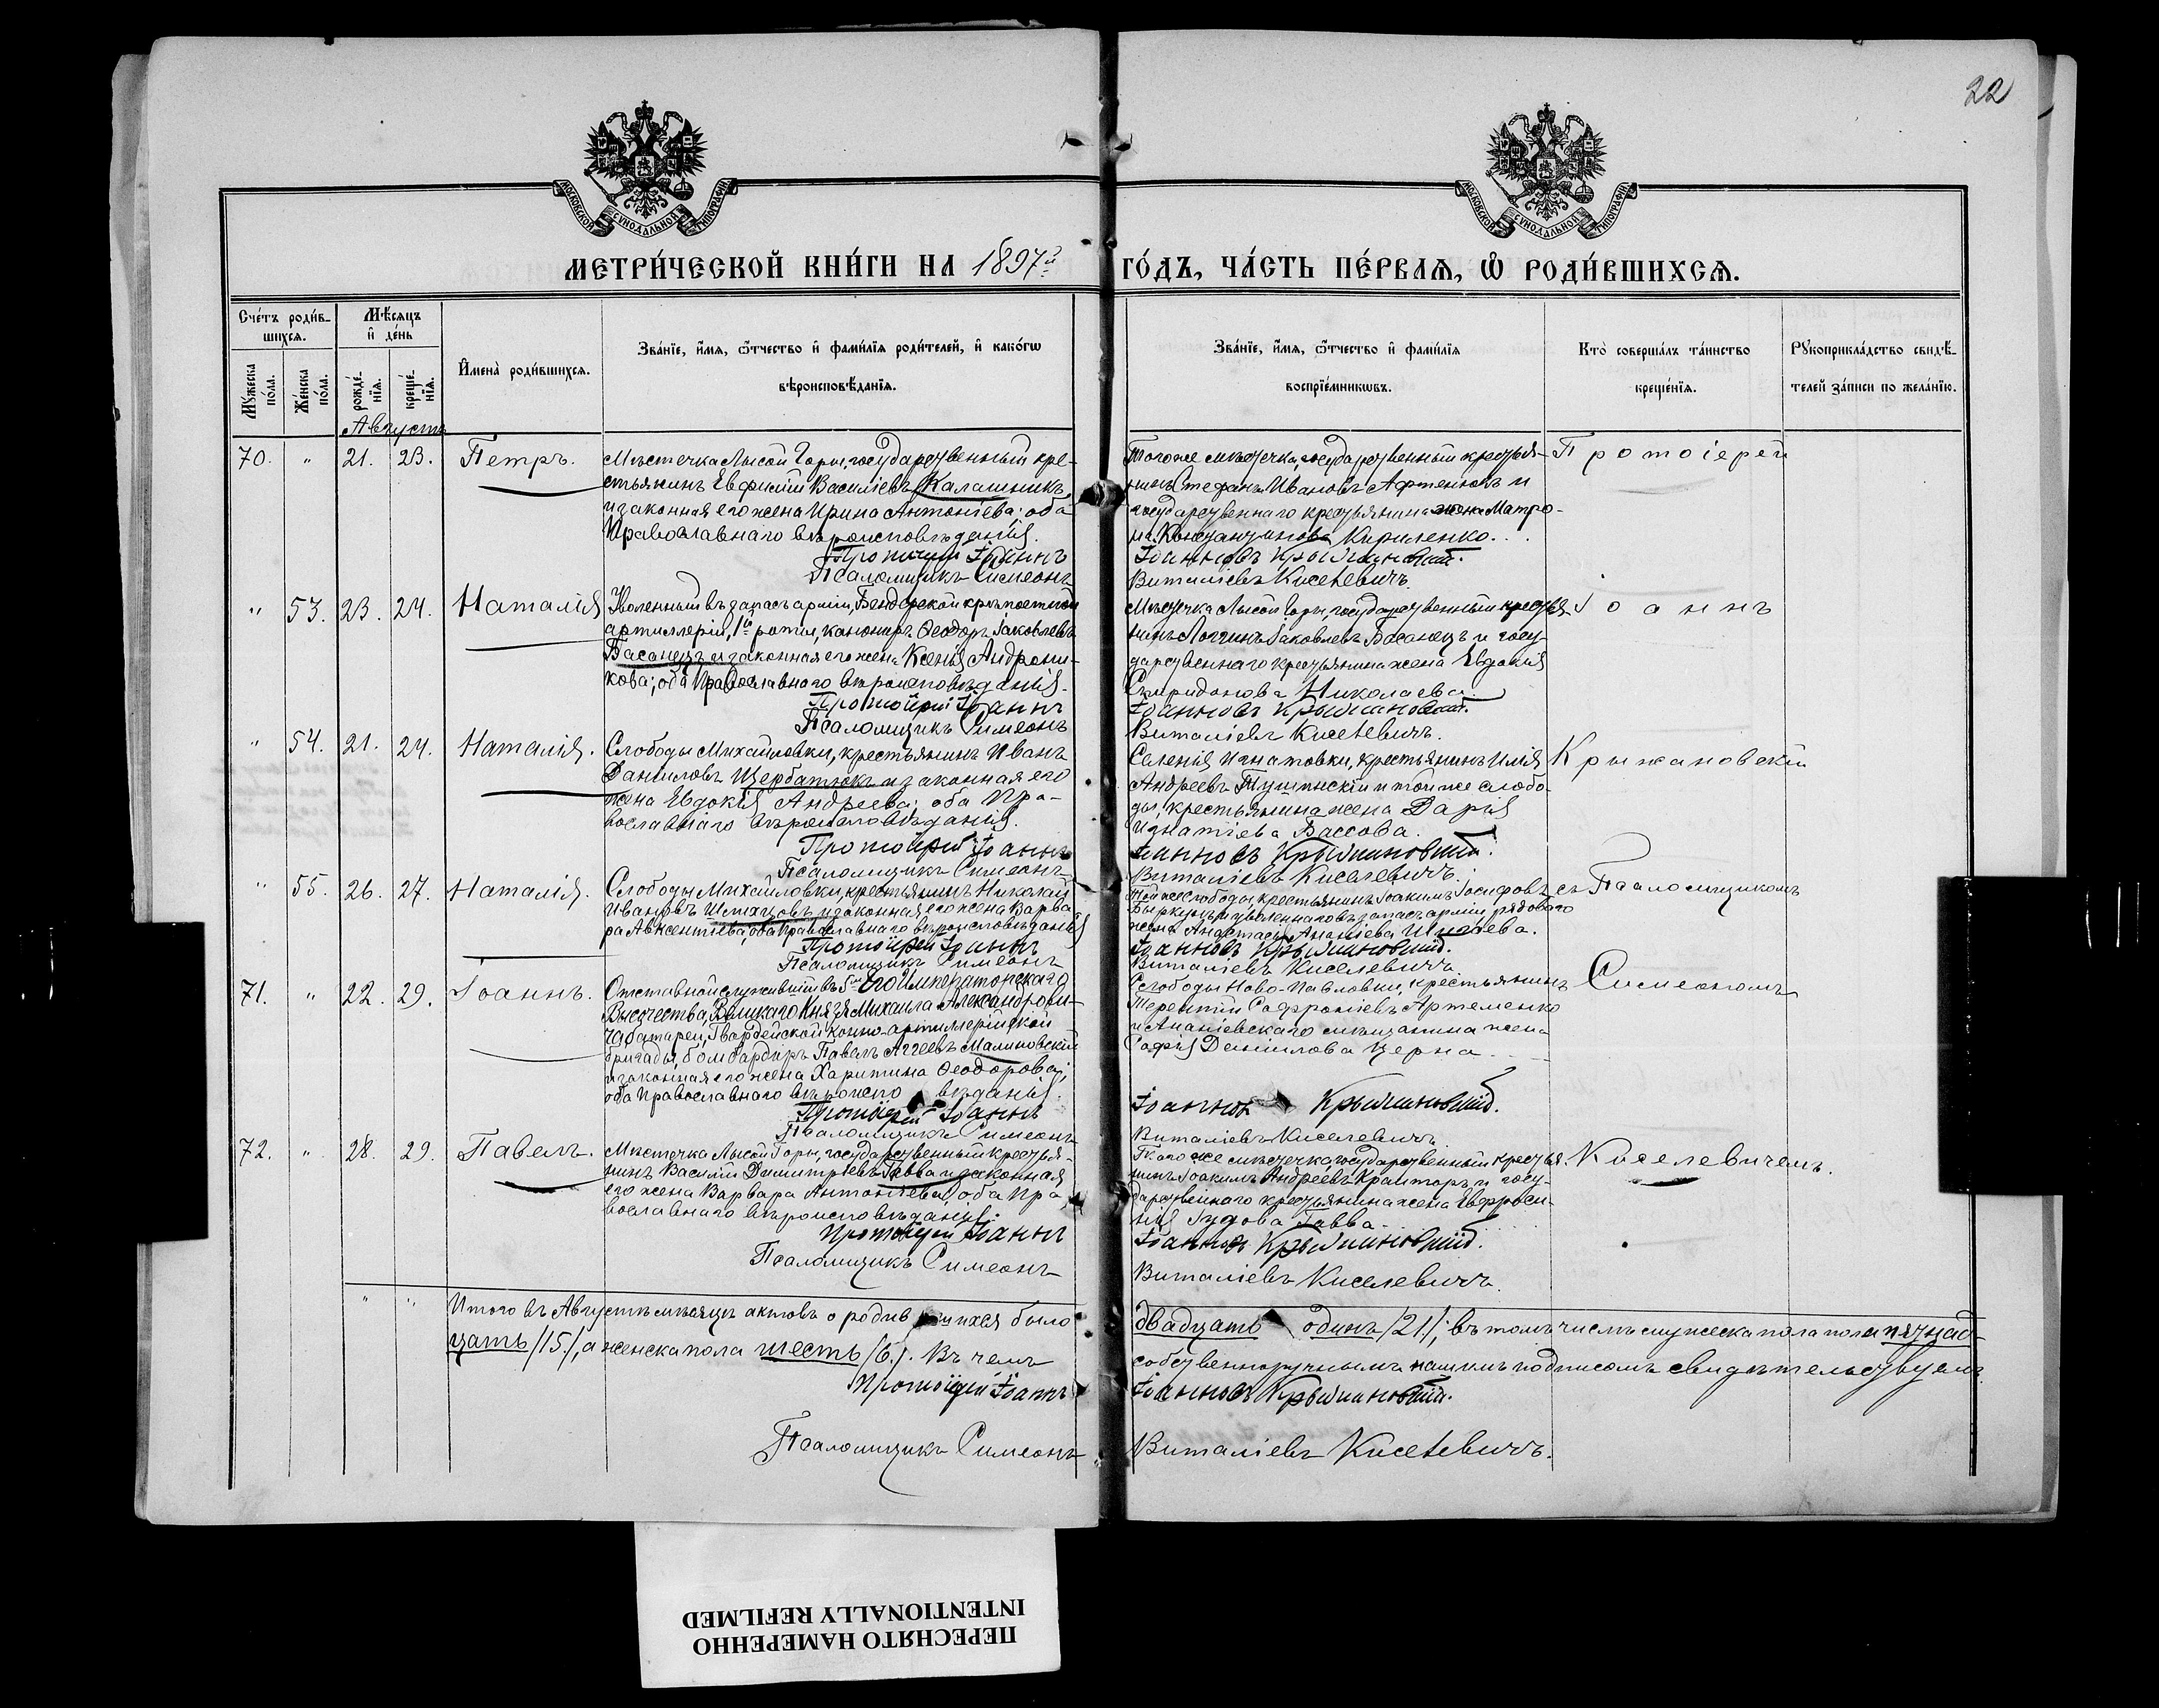 22
МОСКОВСКОЙ СУНОДАЛЬНОЙ ТИПОГРАФІИ
МОСКОВСКОЙ СУНОДАЛЬНОЙ ТИПОГРАФІИ
МЕТРИ́ЧЕСКОЙ КНИ́ГИ НА 1897й ГО́ДЪ, ЧА́СТЬ ПЕ́РВАѦ, Ѡ РОДИ́ВШИХСѦ.
Сче́тъ роди́в-
шихсѧ.
Мѣ́сѧцъ
и҆ де́нь
Мꙋ́жеска по́ла.
Же́нска по́ла.
рожде́-нїѧ.
креще́-нїѧ.
И҆мена̀ роди́вшихсѧ.
Зва́нїе, и҆́мѧ, ѻ҆́тчество и҆ фами́лїѧ роди́телей, и҆ како́гѡ
вѣроисповѣ́данїѧ.
Зва́нїе, и҆́мѧ, ѻ҆́тчество и҆ фами́лїѧ
воспрїе́мникѡвъ.
Кто̀ соверша́лъ та́инство
креще́нїѧ.
Рꙋкоприкла́дство свидѣ́-
телей за́писи по жела́нїю.
Августъ
70. " 21. 23. Петръ.
Мѣстечка Лысой Горы, государственный кре-
стьянинъ Евфимій Василіевъ Калашникъ
и законная его жена Ирина Антоніева; оба
Православнаго вѣроисповѣданія.
Протоіерей Іоаннъ
Псаломщикъ Симеонъ
Того же мѣстечка, государственный крестья-
нинъ Стефанъ Ивановъ Афтенюкъ и
государственнаго крестьянина жена Матро-
на Константинова Кириленко.
Іоанновъ Крыжановскій.
Виталіевъ Киселевичъ.
Протоіерей
" 53. 23. 24. Наталія
Уволенный въ запасъ арміи, Бендерской крѣпостной
артиллеріи, 1й роты, канониръ Ѳеодоръ Іаковлевъ
Басанецъ и законная его жена Ксенія Андрони-
кова; оба Православнаго вѣроисповѣданія.
Протоіерей Іоаннъ
Псаломщикъ Симеонъ
Мѣстечка Лысой Горы, государственный крестья-
нинъ Логгинъ Іаковлевъ Басанецъ и госу-
дарственнаго крестьянина жена Евдокія
Спиридонова Николаева.
Іоанновъ Крыжановскій.
Виталіевъ Киселевичъ.
Іоаннъ
" 54. 21. 24. Наталія.
Слободы Михайловки, крестьянинъ Иванъ
Даниловъ Щербатюкъ и законная его
жена Евдокія Андреева; оба Пра-
вославнаго вѣроисповѣданія.
Протоіерей Іоаннъ
Псаломщикъ Симеонъ
Селенія Игнатовки, крестьянинъ Илія
Андреевъ и той же слобо-
ды, крестьянина жена Дарія
Игнатіева Бассова.
Іоанновъ Крыжановскій.
Виталіевъ Киселевичъ.
Крыжановскій
" 55. 26. 27. Наталія.
Слободы Михайловки, крестьянинъ Николай
Ивановъ и законная его жена Варва-
ра Авксентіева; оба Православнаго вѣроисповѣданія
Протоіерей Іоаннъ
Псаломщикъ Симеонъ
Той же слободы, крестьянинъ Іоакимъ Іосифовъ
и уволеннаго въ запасъ арміи рядового
жена Анастасія Ананіева
Іоанновъ Крыжановскій.
Виталіевъ Киселевичъ.
съ Псаломщикомъ
71. " 22. 29. Іоаннъ.
Отставной служившій въ 5й Его Императорскаго
Высочества, Великаго Князя Михаила Александрови-
ча батареи, Гвардейской Конно-артиллерійской
бригады, бомбардиръ Павелъ Аггеевъ Малиновскій
и законная его жена Харитина Ѳеодорова;
оба Православнаго вѣроисповѣданія.
Протоіерей Іоаннъ
Псаломщикъ Симеонъ
Слободы Ново-Павловки, крестьянинъ
Терентій Софроніевъ Артеменко
и Ананіевскаго мѣщанина жена
Софія Данилова Церна.
Іоанновъ Крыжановскій.
Виталіевъ Киселевичъ.
Симеономъ
72. " 28. 29. Павелъ.
Мѣстечка Лысой Горы, государственный крестья-
нинъ Василій Димитріевъ Гавва и законная
его жена Варвара Антоніева; оба Пра-
вославнаго вѣроисповѣданія.
Протоіерей Іоаннъ
Псаломщикъ Симеонъ
Того же мѣстечка, государственный крестья-
нинъ Іоакимъ Андреевъ и госу-
дарственнаго крестьянина жена Евфроси-
нія Гавва.
Іоанновъ Крыжановскій.
Виталіевъ Киселевичъ.
Киселевичемъ.
" " Итого въ Августѣ мѣсяцѣ актовъ о родившихся было двадцать одинъ /21/; въ томъ числѣ мужеска пола пятнад-
цать /15/, а женска пола шесть /6/. Въ чемъ собственноручнымъ нашимъ подписомъ свидѣтельствуемъ.
Протоіерей Іоаннъ Іоанновъ Крыжановскій.
Псаломщикъ Симеонъ Виталіевъ Киселевичъ.
ПЕРЕСНЯТО НАМЕРЕННО
INTENTIONALLY REFILMED